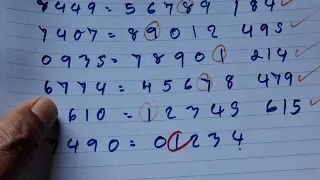 8449 = 56789 184 ✓
7407 = 89012 495 ✓
0935 = 78901 214 ✓
6774 = 45678 479 ✓
610 = 12345 615 ✓
490 = 01234